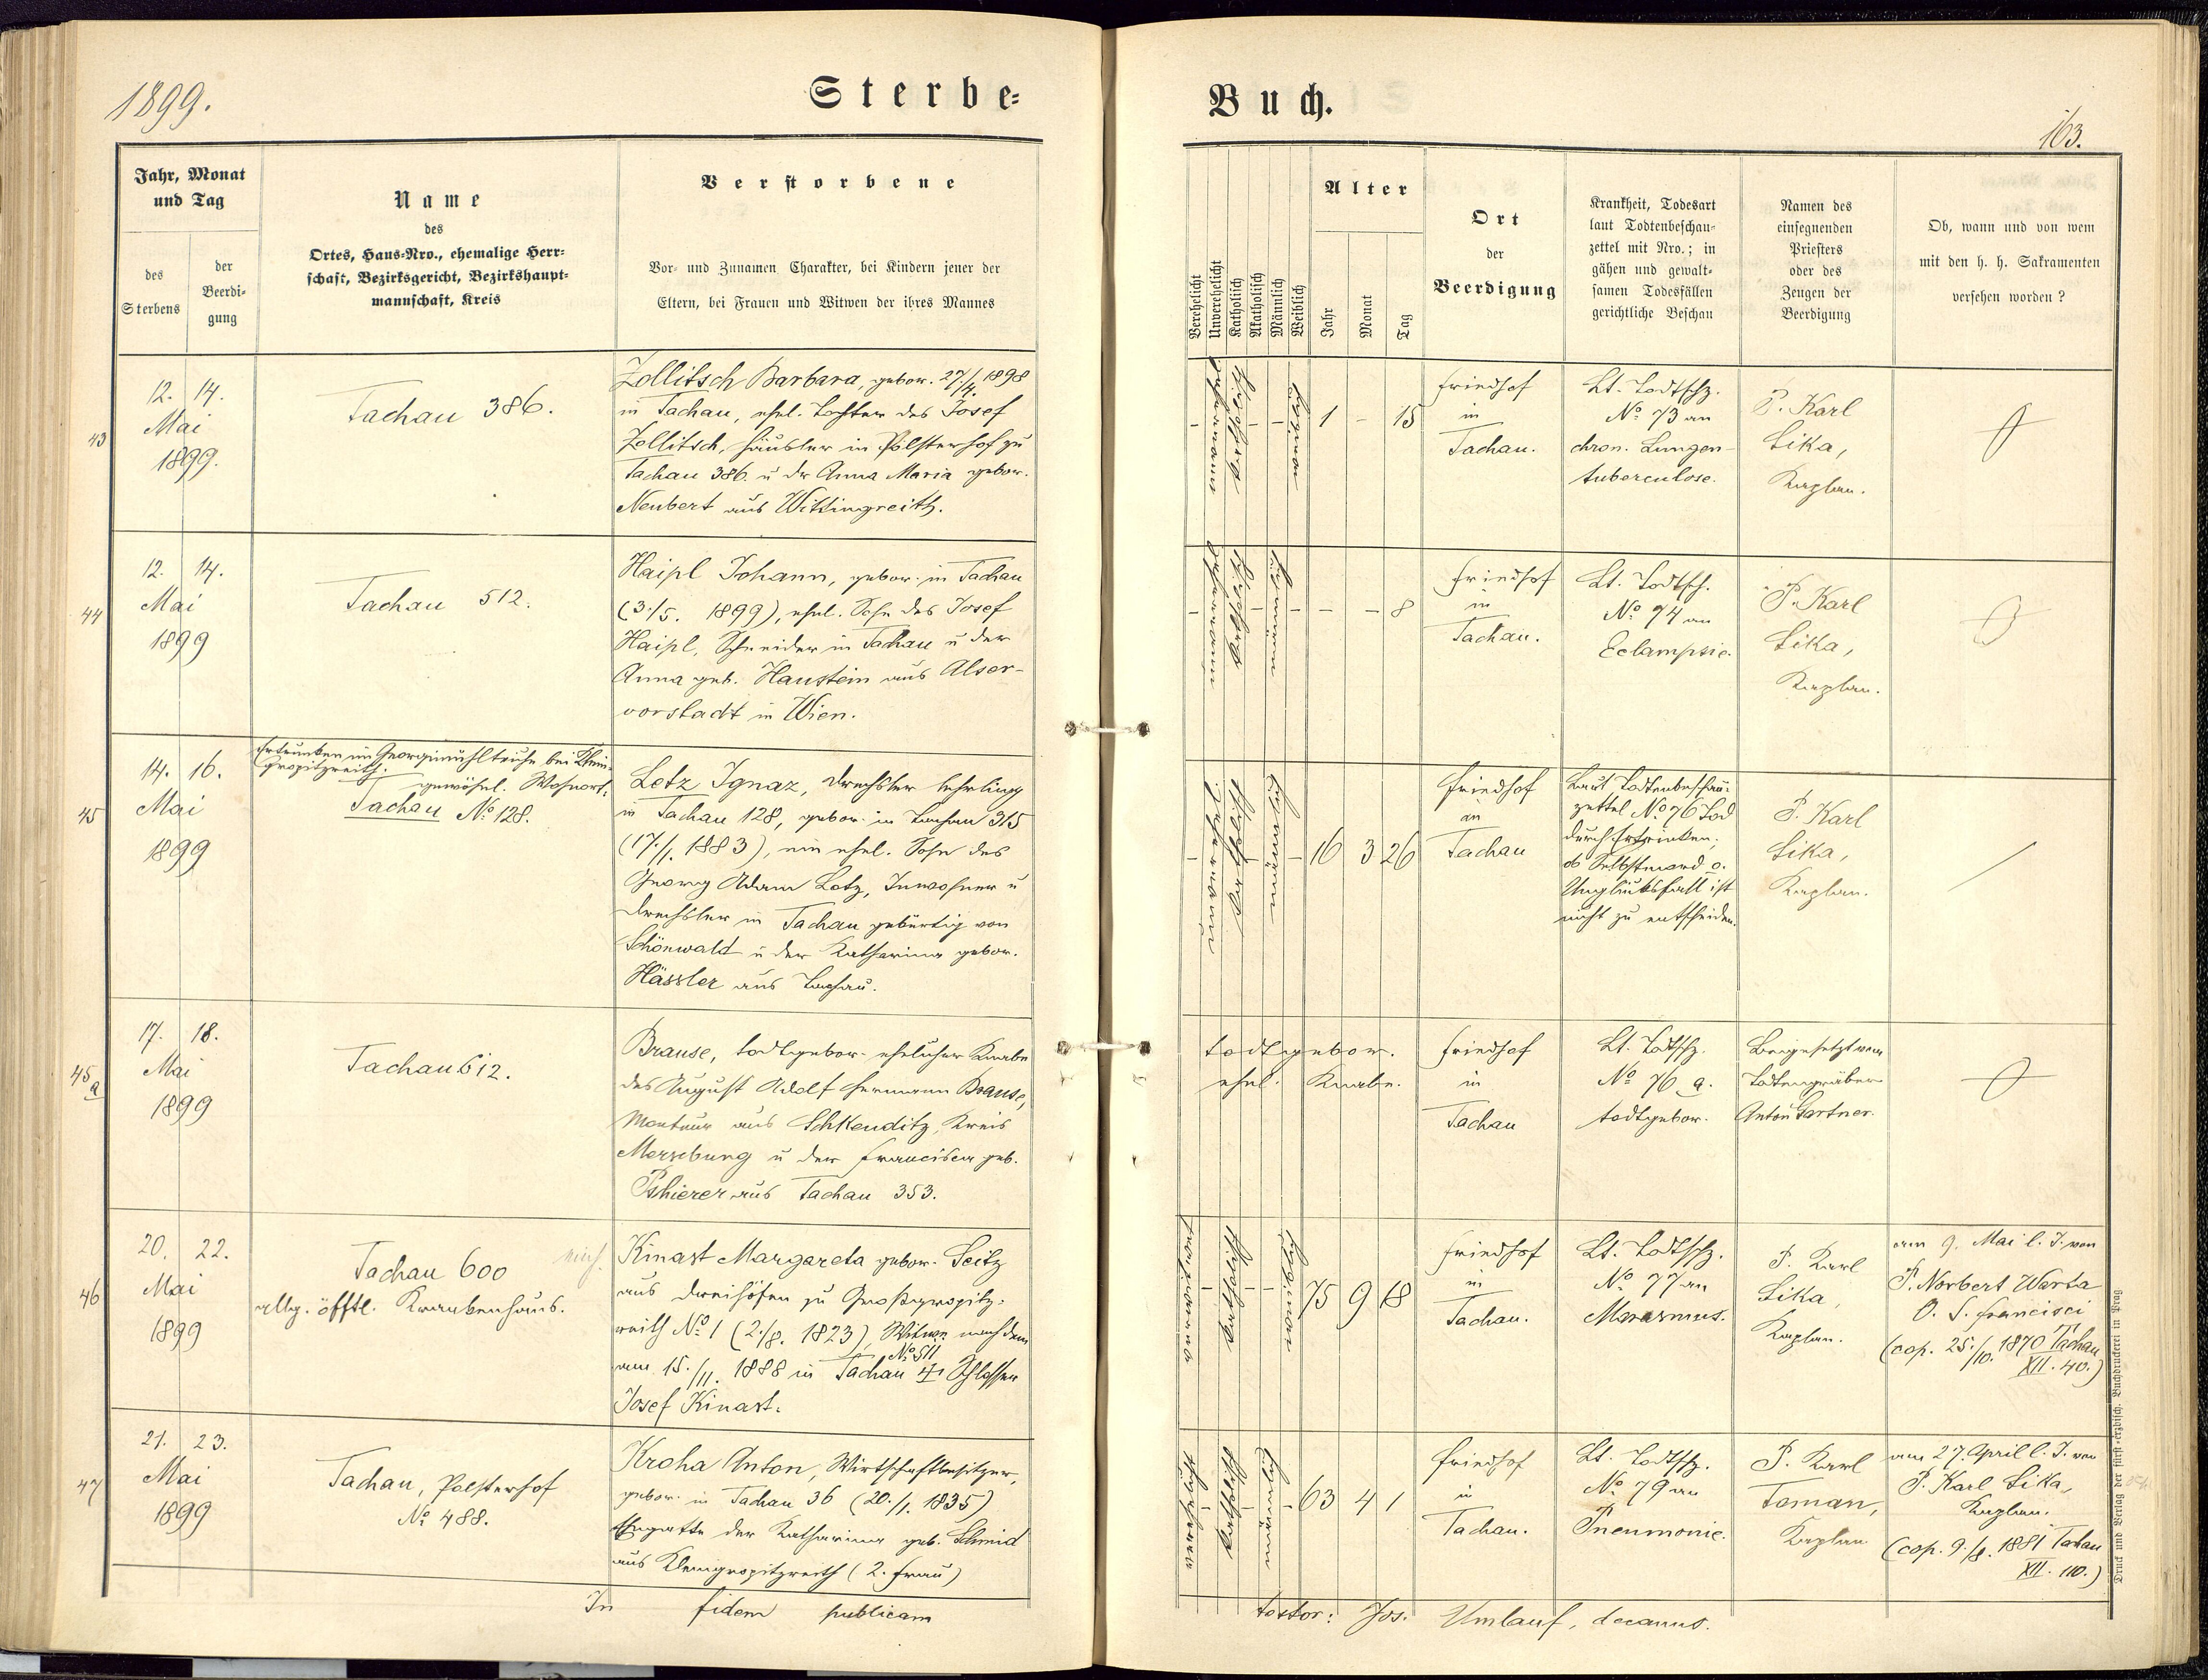 1899.
Sterbe-
Jahr, Monat
und Tag
des
Sterbens
der
Beerdi-
gung
Name
des
Ortes, Haus-Nro., ehemalige Herr-
schaft, Bezirksgericht, Bezirkshaupt-
mannschaft, Kreis
Verstorbene
Vor- und Zunamen Charakter, bei Kindern jener der
Eltern, bei Frauen und Witwen der ihres Mannes
43
12. 14.
Mai
1899.
Tachau 386.
Zollitsch Barbara, gebor. 27./4. 1898
in Tachau, ehel. Tochter des Josef
Zollitsch, Häusler in Pölsterhof zu
Tachau 386. u der Anna Maria gebor.
Neubert aus Wittingreith.
44
12. 14.
Mai
1899
Tachau 512.
Haipl Johann, gebor. in Tachau
(3./5. 1899), ehel. Sohn des Josef
Haipl, Schneider in Tachau u der
Anna geb. Haustein aus Alser-
vorstadt in Wien.
45
14. 16.
Mai
1899
Ertrunken im Georgimühlteuche bei Klein-
gropitzreith.
gewöhnl. Wohnort:
Tachau No 128.
Letz Ignaz, Drechsler lehrling
in Tachau 128, gebor. in Tachau 315
(17./1. 1883), ein ehel. Sohn des
Georg Adam Letz, Inwohner u
Drechsler in Tachau gebürtig von
Schönwald u der Katharina gebor.
Hässler aus Tachau.
45a
17. 18.
Mai
1899
Tachau 612.
Brause, todtgebor. ehelicher Knabe
des August Adolf Hermann Brause,
Monteur aus Schkeuditz, Kreis
Merseburg u der Francisca geb.
Pshierer aus Tachau 353.
46
20. 22.
Mai
1899
Tachau 600
allg. öfftl. Krankenhaus.
Kinast Margareta gebor. Seitz
aus Dreihöfen zu Großgropitz-
reith No 1 (2./8. 1823), Witwe nach dem
No 511
am 15./11. 1888 in Tachau † Schlosser
Josef Kinast.
47
21. 23.
Mai
1899
Tachau, Polsterhof
No 488.
Kroha Anton, Wirtschaftbesitzer,
gebor. in Tachau 36 (20./1. 1835)
Ehegatte der Katharina geb. Schmid
aus Kleingropitzreith (2. Frau)
In fidem publicam
Buch.
163.
Verehelicht
Unverehelicht
Katholisch
Akatholisch
Männlich
Weiblich
Alter
Jahr
Monat
Tag
Ort
der
Beerdigung
Krankheit, Todesart
laut Todtenbeschau-
zettel mit Nro.; in
gähen und gewalt-
samen Todesfällen
gerichtliche Beschau
Namen des
einsegnenden
Priesters
oder des
Zeugen der
Beerdigung
Ob, wann und von wem
mit den h. h. Sakramenten
versehen worden?
- katholisch - - 1 - 15
Friedhof
in
Tachau.
Lt. Todtschz.
No 73 an
chron. Lungen-
tuberculose.
P. Karl
Sika,
Kaplan.
- katholisch - - - - 8
Friedhof
in
Tachau.
Lt. Todtsch.
No 74 an
Eclampsie.
P. Karl
Sika,
Kaplan.
- katholisch - - 16 3 26
Friedhof
in
Tachau
Laut Todtenbeschau-
zettel No 76 Tod
durch Ertrinken;
ob Selbstmord o.
Unglücksfall ist
nicht zu entscheiden.
P. Karl
Sika,
Kaplan.
todtgebor.
ehel. Knabe.
Friedhof
in
Tachau
Lt. Todtschz.
No 76 a.
todtgebor.
Beigesetzt vom
Todtengräber
Anton Gartner.
- katholisch - - 75 9 18
Friedhof
in
Tachau.
Lt. Todtschz.
No 77 an
Marasmus.
P. Karl
Sika,
Kaplan.
am 9. Mai l. J. von
P. Norbert Warta
O. S. Francisci
(cop. 25./10. 1870 Tachau
XII. 40.)
- katholisch - - 63 4 1
Friedhof
in
Tachau.
Lt. Todtschz.
No 79 an
Pneumonie.
P. Karl
Toman,
Kaplan
am 27. April l. J. von
P. Karl Sika,
Kaplan.
(cop. 9./8. 1881 Tachau
XII. 110.)
testor: Jos. Umlauf, decanus.
Druck und Verlag der fürst-erzbisch. Buchdruckerei in Prag.